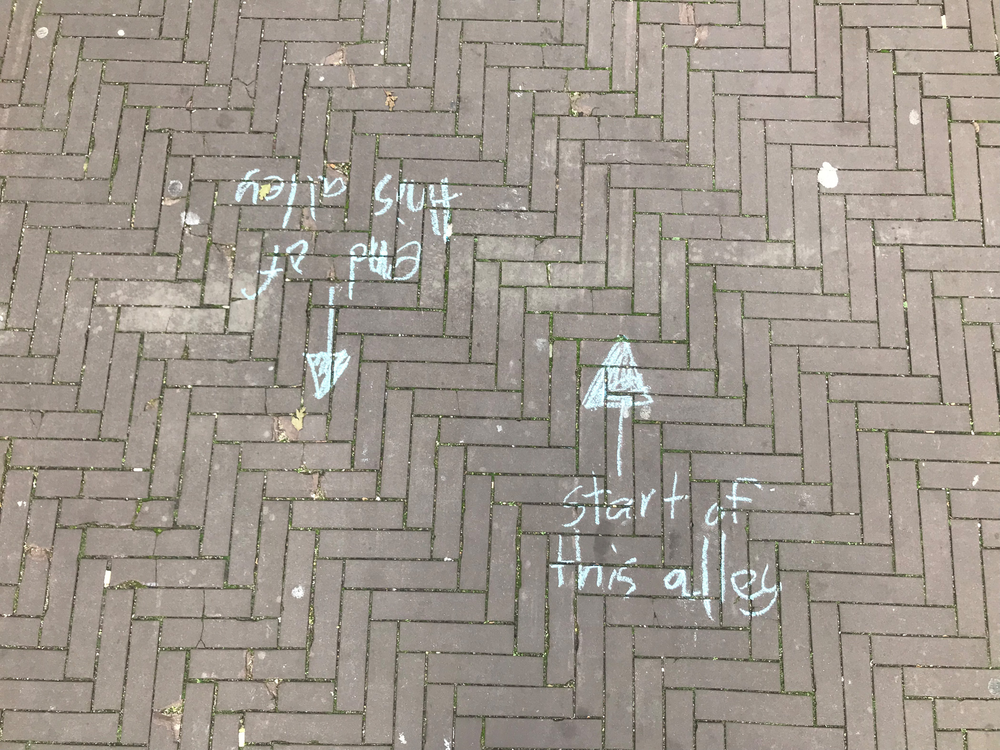 End of
this alley
start of
this alley